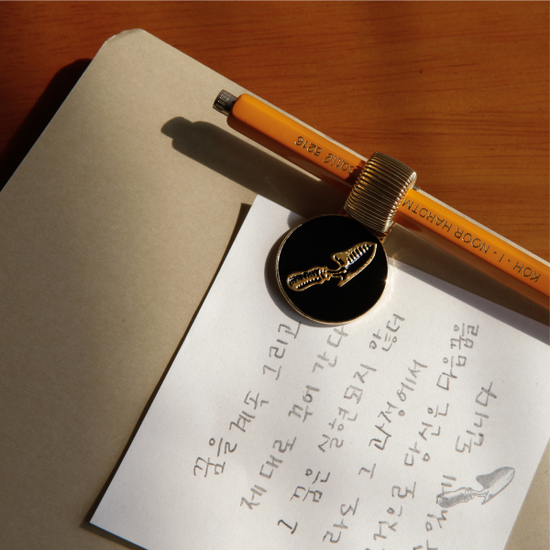 꿈을 계속 그리고
제대로
간다
그 꿈은 실현되지 않더
라도 그 과정에서
당신은 다음 꿈을
됩니다
KOH-I-NOOR HARDTM